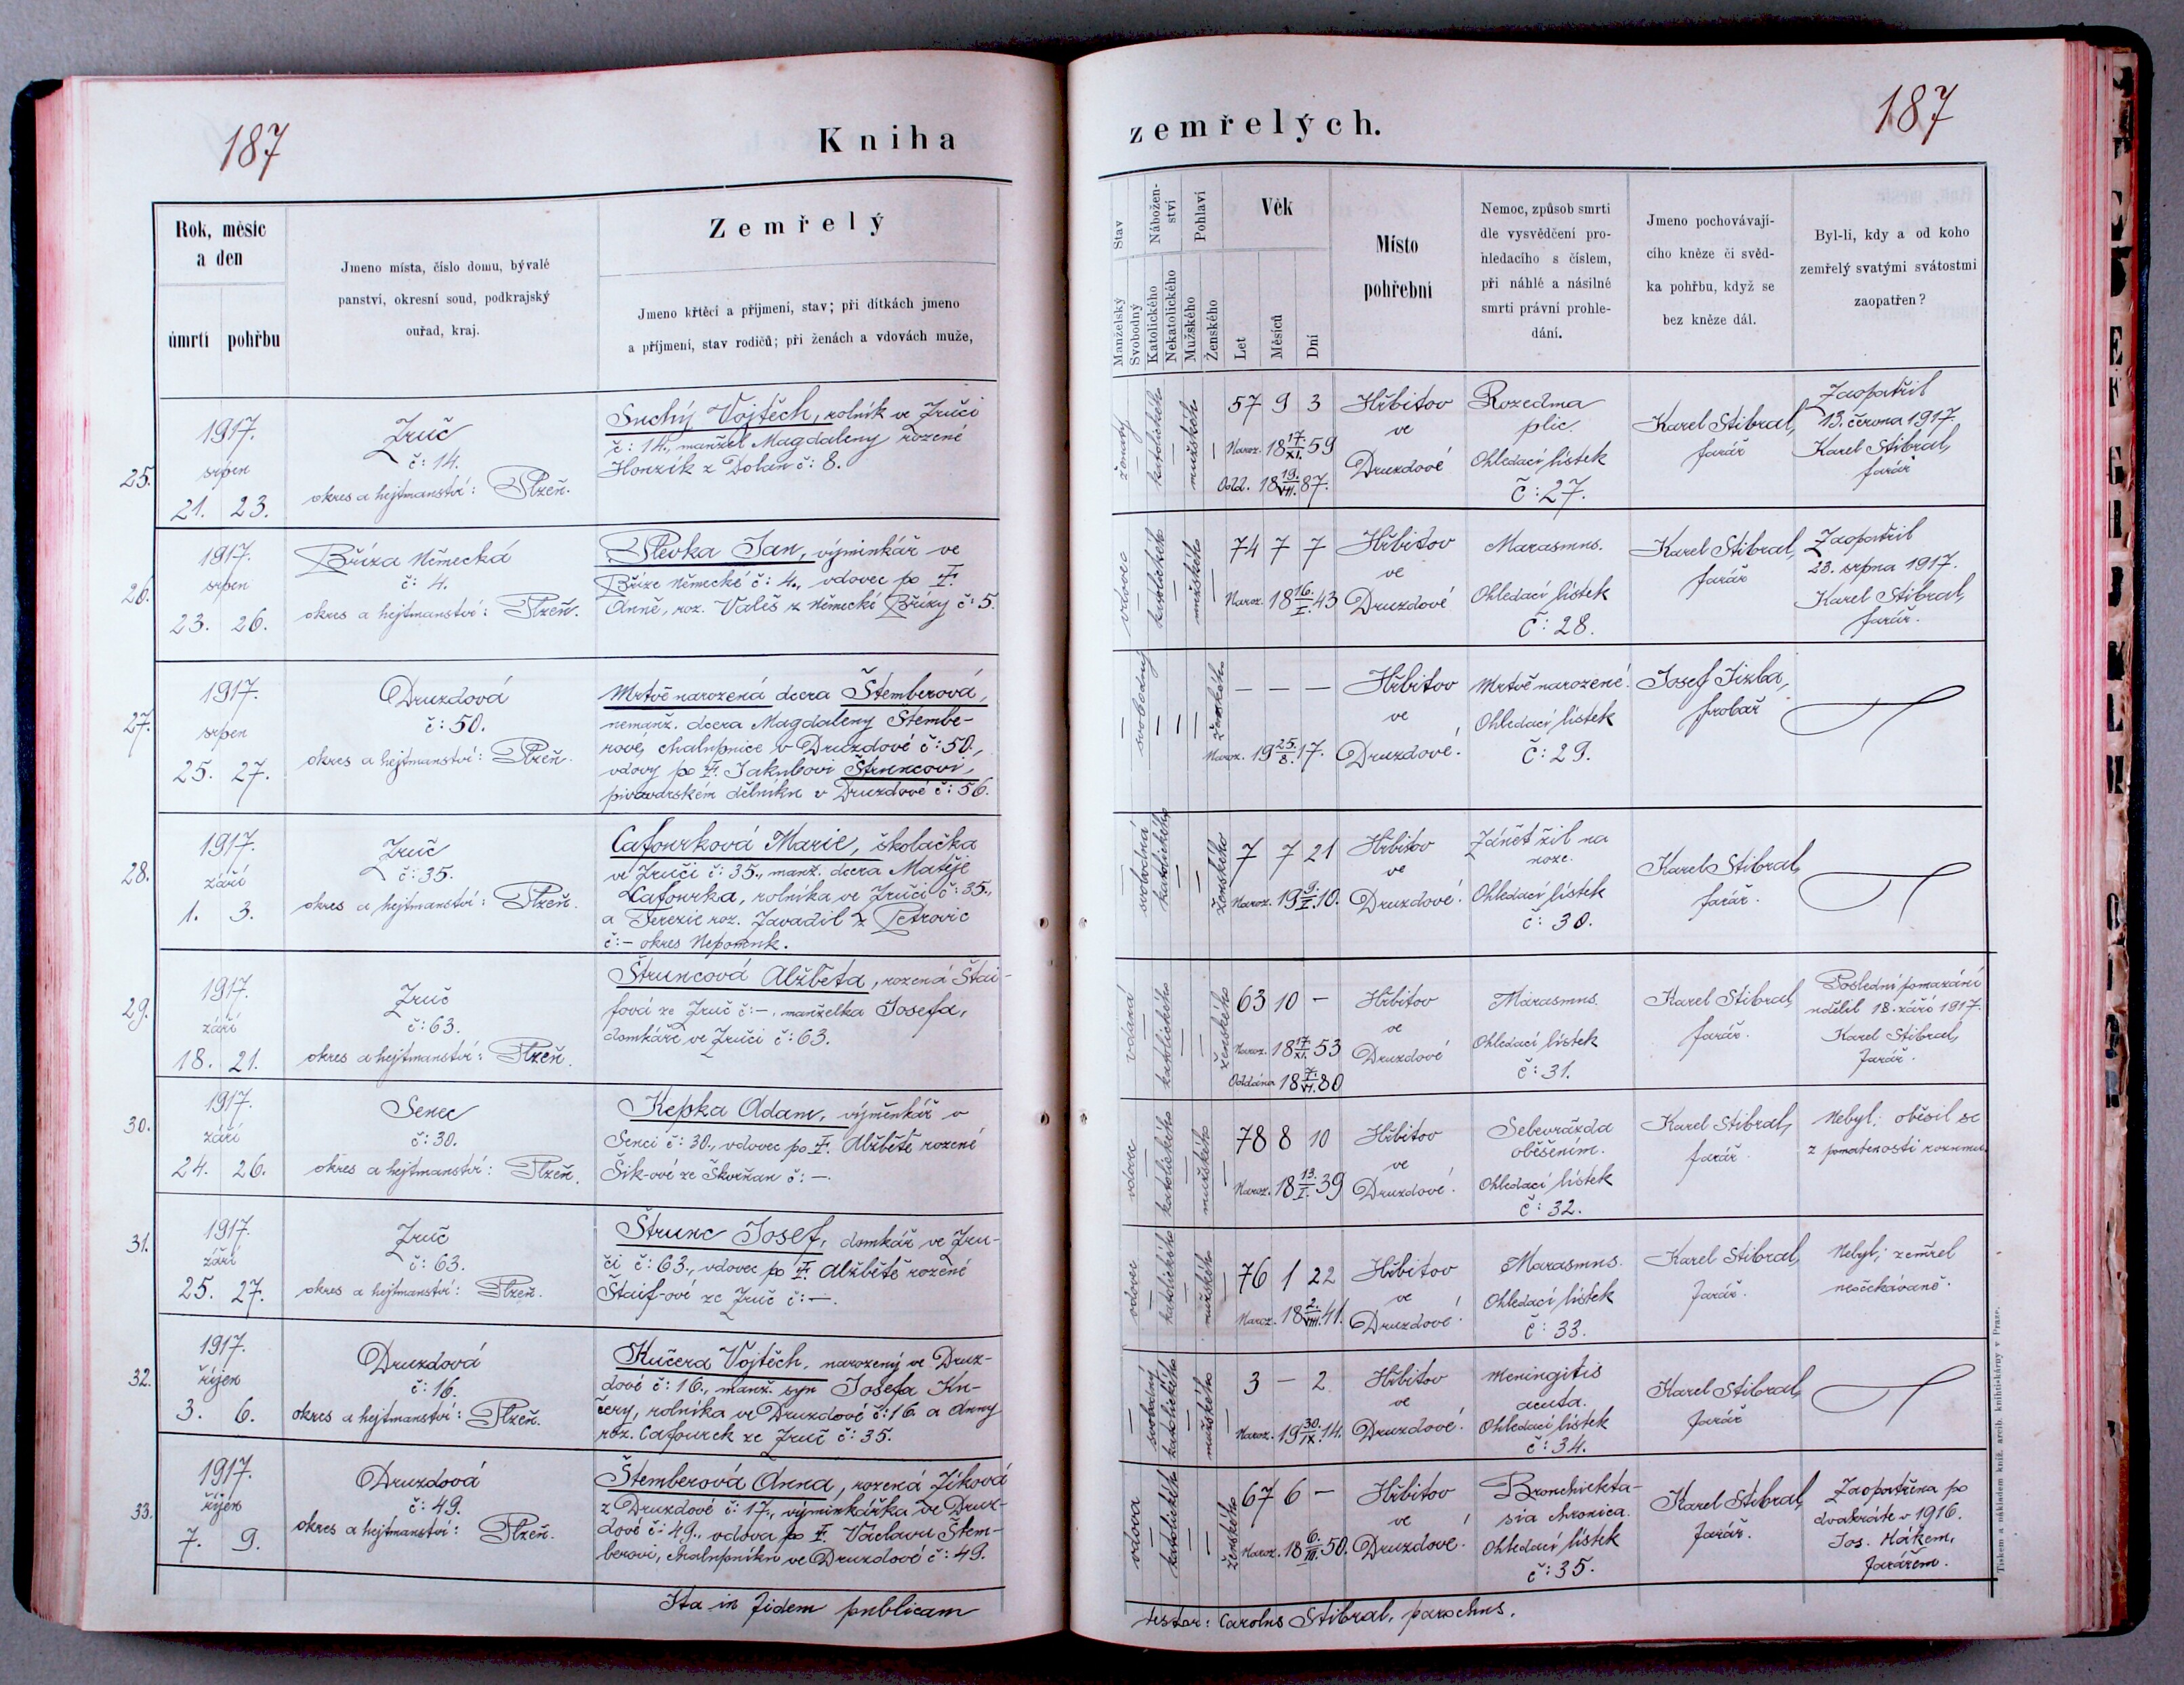 187
Kniha
zemřelých.
187
Rok, měsíc
a den
úmrtí
pohřbu
Jmeno místa, číslo domu, bývalé
panství, okresní soud, podkrajský
ouřad, kraj.
Zemřelý
Jmeno křtěcí a příjmení, stav; při dítkách jmeno
a příjmení, stav rodičů; při ženách a vdovách muže,
Stav
Manželský
Svobodný
Nábožen-
ství
Katolického
Nekatolického
Pohlaví
Mužského
Ženského
Věk
Let
Měsíců
Dní
Místo
pohřební
Nemoc, způsob smrti
dle vysvědčení pro-
hledacího s číslem,
při náhlé a násilné
smrti právní prohle-
dání.
Jmeno pochovávají-
cího kněze či svěd-
ka pohřbu, když se
bez kněze dál.
Byl-li, kdy a od koho
zemřelý svatými svátostmi
zaopatřen?
25.
1917.
srpen
21. 23.
Zruč
č: 14.
okres a hejtmanství: Plzeň.
Suchý Vojtěch, rolník ve Zruči
č: 14., manžel Magdaleny rozené
Honzík z Dolan č: 8.
ženatý
katolického
mužského
57 9 3
Naroz. 18 17./XI. 59
Odd. 18 19./VII. 87.
Hřbitov
ve
Druzdové
Rozedma
plic.
Ohledací lístek
č: 27.
Karel Stibral,
farář
Zaopatřil
13. června 1917.
Karel Stibral,
farář
26.
1917.
srpen
23. 26.
Bříza Německá
č: 4.
okres a hejtmanství: Plzeň.
Plevka Jan, výminkář ve
Bříze Německé č: 4., vdovec po †
Anně, roz. Valeš z Německé Břízy č: 5.
vdovec
katolického
mužského
74 7 7
Naroz. 18 16./I. 43
Hřbitov
ve
Druzdové
Marasmus.
Ohledací lístek
č: 28.
Karel Stibral,
farář
Zaopatřil
23. srpna 1917.
Karel Stibral,
farář.
27.
1917.
srpen
25. 27.
Druzdová
č: 50.
okres a hejtmanství: Plzeň.
Mrtvě narozená dcera Štemberová,
nemanž. dcera Magdaleny Štembe-
rové, chalupnice v Druzdové č: 50.,
vdovy po † Jakubovi Štruncovi,
pivovarském dělníku v Druzdové č: 56.
svobodný
ženského
— — —
Naroz. 19 25./8. 17.
Hřbitov
ve
Druzdové.
Mrtvě narozené.
Ohledací lístek
č: 29.
Josef Jizba,
probař
28.
1917.
září
1. 3.
Zruč
č: 35.
okres a hejtmanství: Plzeň.
Cafourková Marie, školačka
ve Zruči č: 35., manž. dcera Matěje
Cafourka, rolníka ve Zruči č: 35.,
a Terezie roz. Zavadil z Petrovic
č: – okres Nepomuk.
svobodná
katolického
ženského
7 7 21
Naroz. 19 9./I. 10.
Hřbitov
ve
Druzdové.
Zánět žil na
noze.
Ohledací lístek
č: 30.
Karel Stibral,
farář.
29.
1917.
září
18. 21.
Zruč
č: 63.
okres a hejtmanství: Plzeň.
Štruncová Alžběta, rozená Štai-
fová ze Zruč č: –, manželka Josefa,
domkáře ve Zruči č: 63.
vdaná
katolického
ženského
63 10 –
Naroz. 18 17./XI. 53
Oddána 18 7./VI. 80
Hřbitov
ve
Druzdové
Marasmus.
Ohledací lístek
č: 31.
Karel Stibral,
farář.
Poslední pomazání
udělil 18. září 1917.
Karel Stibral,
farář.
30.
1917.
září
24. 26.
Senec
č: 30.
okres a hejtmanství: Plzeň.
Kepka Adam, výměnkář v
Senci č: 30., vdovec po † Alžbětě rozené
Šik-ové ze Škvrňan č: –.
vdovec
katolického
mužského
78 8 10
Naroz. 18 13./I. 39
Hřbitov
ve
Druzdové.
Sebevražda
oběšením.
Ohledací lístek
č: 32.
Karel Stibral,
farář
Nebyl; oběsil se
z pomatenosti rozumu.
31.
1917.
září
25. 27.
Zruč
č: 63.
okres a hejtmanství: Plzeň.
Štrunc Josef, domkář ve Zru-
či č: 63., vdovec po † Alžbětě rozené
Štaif-ové ze Zruč č: –.
vdovec
katolického
mužského
76 1 22
Naroz. 18 2./VIII. 41.
Hřbitov
ve
Druzdové.
Marasmus.
Ohledací lístek
č: 33.
Karel Stibral,
farář.
Nebyl; zemřel
neočekávaně.
32.
1917.
říjen
3. 6.
Druzdová
č: 16.
okres a hejtmanství: Plzeň.
Kučera Vojtěch, narozený ve Druz-
dové č: 16., manž. syn Josefa Ku-
čery, rolníka ve Druzdové č: 16. a Anny
roz. Cafourek ze Zruč č: 35.
svobodný
katolického
mužského
3 – 2
Naroz. 19 30./IX. 14.
Hřbitov
ve
Druzdové.
Meningitis
acuta.
Ohledací lístek
č: 34.
Karel Stibral,
farář
33.
1917.
říjen
7. 9.
Druzdová
č: 49.
okres a hejtmanství: Plzeň.
Štemberová Anna, rozená Jíková
z Druzdové č: 17., výminkářka ve Druz-
dové č: 49., vdova po † Václavu Štem-
berovi, chalupníku ve Druzdové č: 49.
vdova
katolického
ženského
67 6 –
Naroz. 18 6./III. 50.
Hřbitov
ve
Druzdové.
Bronchiekta-
sia chronica.
Ohledací lístek
č: 35.
Karel Stibral,
farář.
Zaopatřena po
dvakráte v 1916.
Jos. Hákem,
farářem.
Ita in fidem publicam
testor: Carolus Stibral, parochus.
Tiskem a nákladem kníž. arcib. knihtiskárny v Praze.